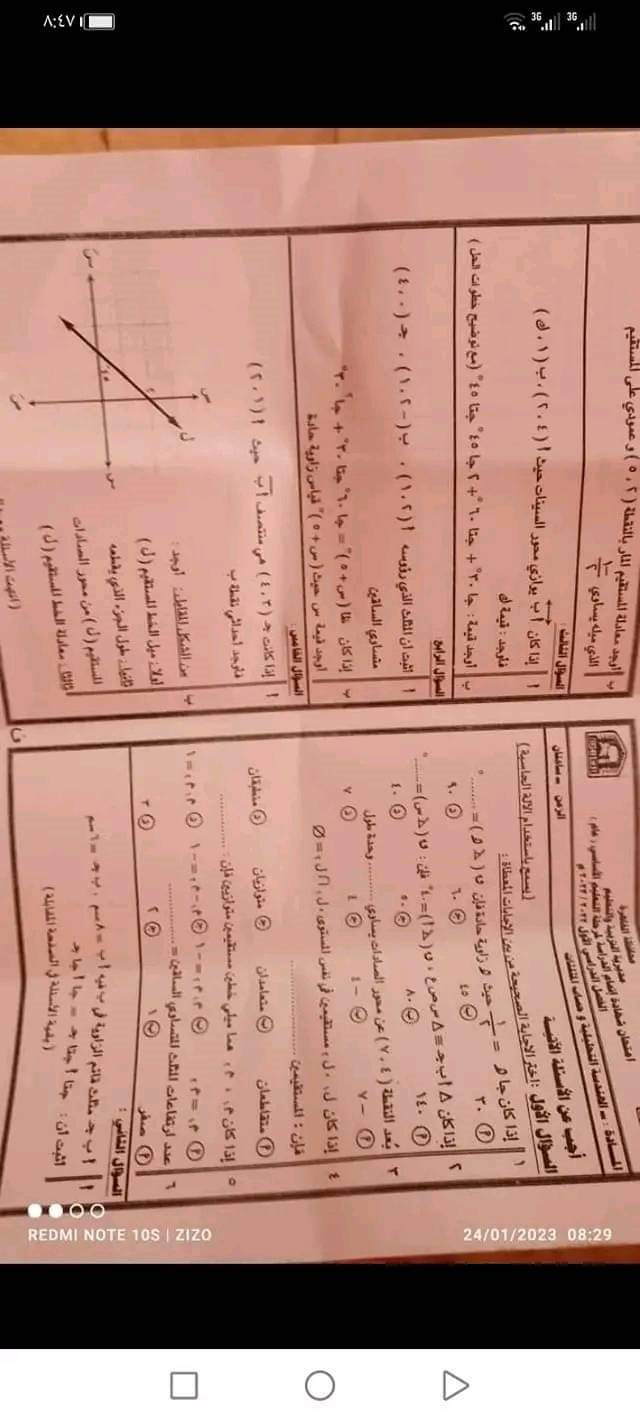 ٨:٤٧
3G 3G
محافظة القاهرة
مديرية التربية والتعليم
امتحان شهادة إتمام الدراسة لمرحلة التعليم الأساسي (عام)
الفصل الدراسي الأول ٢٠٢٢ / ٢٠٢٣ م
المادة : - الهندسة التحليلية وحساب المثلثات
الزمن - ساعتان
أجب عن الأسئلة الآتية
(يسمح باستخدام الآلة الحاسبة)
السؤال الأول : اختر الإجابة الصحيحة من بين الإجابات المعطاة :
١ إذا كان جا ه = ١/٢ حيث ه زاوية حادة فإن ق (∠ ه) = ........°
أ ٣٠ ب ٤٥ ج ٦٠ د ٩٠
٢ إذا كان Δ أ ب جـ ≡ Δ س ص ع ، ق (∠ أ) = ٤٠° فإن : ق (∠ س) = ........°
أ ١٤٠ ب ٨٠ ج ٥٠ د ٤٠
٣ بُعد النقطة (٤ ، ٧) عن محور الصادات يساوي ........ وحدة طول
أ - ٧ ب - ٤ ج ٤ د ٧
٤ إذا كان ل١ ، ل٢ مستقيمين في نفس المستوى ، ل١ ∩ ل٢ = ∅
فإن : المستقيمين ................
أ متقاطعان ب متعامدان ج متوازيان د منطبقان
٥ إذا كان م١ ، م٢ هما ميلي خطين مستقيمين متوازيين فإن : ............
أ م١ = م٢ ب م١ م٢ = - ١ ج م١ - م٢ = - ١ د م١ م٢ = ١
٦ عدد ارتفاعات المثلث المتساوي الساقين = ............
أ صفر ب ١ ج ٢ د ٣
السؤال الثاني :
أ أ ب جـ مثلث قائم الزاوية في ب فيه أ ب = ٨ سم ، ب جـ = ٦ سم
اثبت أن : جتا أ جتا جـ = جا أ جا جـ
(بقية الأسئلة في الصفحة المقابلة)
ب أوجد معادلة المستقيم المار بالنقطة (٢ ، ٥) وعمودي على المستقيم
الذي ميله يساوي ١/٢
السؤال الثالث :
أ إذا كان أ ب يوازي محور السينات حيث أ (٤ ، ٢) ، ب (١ ، ك)
فأوجد : قيمة ك
ب أوجد قيمة : جا ٣٠° + جتا ٦٠° + ٢ جا ٤٥° جتا ٤٥° (مع توضيح خطوات الحل)
السؤال الرابع
أ اثبت أن المثلث الذي رؤوسه أ (٢ ، ١) ، ب (-٢ ، ١) ، جـ (٠ ، ٤)
متساوي الساقين
ب إذا كان ظا (س + ٥)° = جا ٦٠° جتا ٣٠° + جا² ٣٠°
أوجد قيمة س حيث (س + ٥)° قياس زاوية حادة
السؤال الخامس :
أ إذا كانت جـ (٣ ، ٤) هي منتصف أ ب حيث أ (١ ، ٢)
فأوجد إحداثي نقطة ب
ب من الشكل المقابل : أوجد :
أولاً : ميل الخط المستقيم (ل)
ثانياً : طول الجزء الذي يقطعه
المستقيم (ل) من محور الصادات
ثالثاً : معادلة الخط المستقيم (ل)
REDMI NOTE 10S | ZIZO
24/01/2023 08:29